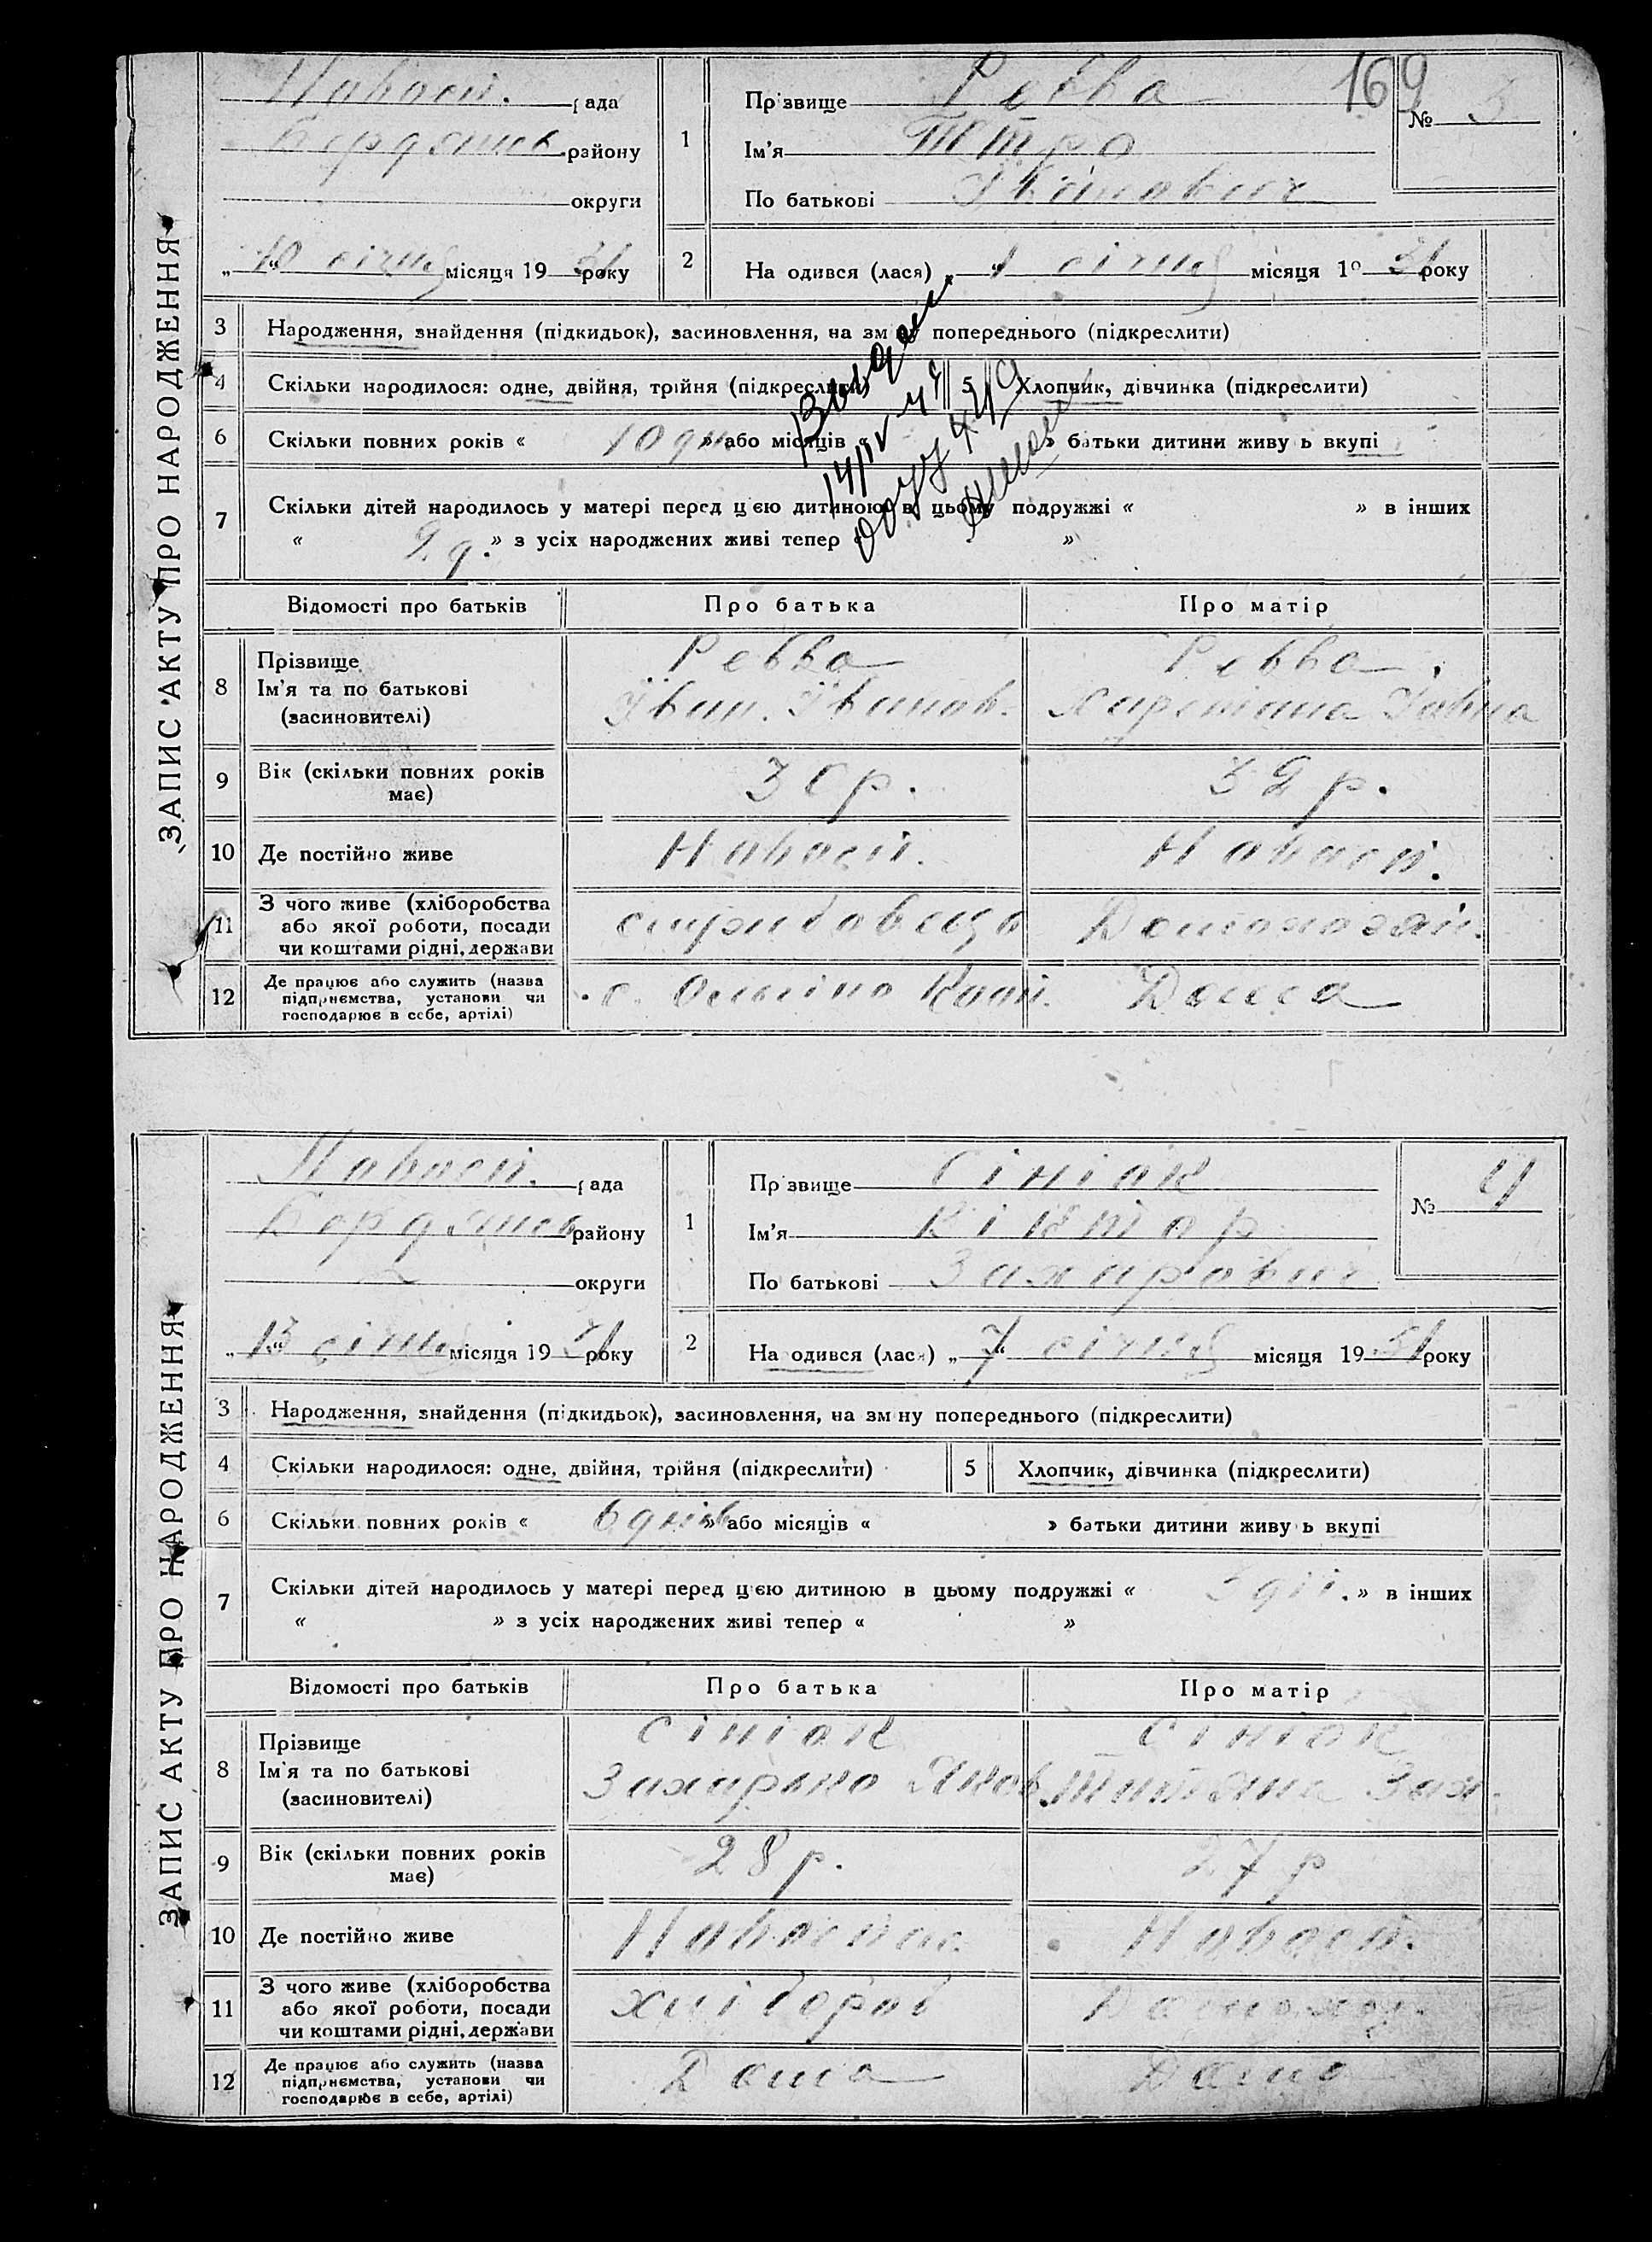 169
Новосп. рада
Бердянськ району
округи
„10“ січня місяця 1931 року
1
Прізвище Ревва
№ 3
Ім'я Петро
По батькові Іванович
2 На одився (лася) „1 січня місяця 19 31 року
3 Народження, знайдення (підкидьок), засиновлення, на зм ну попереднього (підкреслити)
4 Скільки народилося: одне, двійня, трійня (підкреслити) 5 Хлопчик, дівчинка (підкреслити)
6 Скільки повних років « 10 дн » або місяців « » батьки дитини живу ь вкупі
7 Скільки дітей народилось у матері перед цією дитиною в цьому подружжі « » в інших
« 2 д. » з усіх народжених живі тепер « »
Відомості про батьків Про батька Про матір
8 Прізвище Ревва Ревва
Ім'я та по батькові Іван. Іванов.
(засиновителі)
9 Вік (скільки повних років має) 30 р. 32 р.
10 Де постійно живе Новосп. Новосп.
11 З чого живе (хліборобства або якої роботи, посади чи коштами рідні, держави Домохозяй.
12 Де працює або служить (назва підприємства, установи чи господарює в себе, артілі) Дома
ЗАПИС АКТУ ПРО НАРОДЖЕННЯ
Новосп. рада
Бердянськ району
округи
„13“ січня місяця 1931 року
1
Пр звище Сініак
№ 4
Ім'я Віктор
По батькові Захарович
2 На одився (лася) „7“ січня місяця 19 31 року
3 Народження, знайдення (підкидьок), засиновлення, на зм ну попереднього (підкреслити)
4 Скільки народилося: одне, двійня, трійня (підкреслити) 5 Хлопчик, дівчинка (підкреслити)
6 Скільки повних років « 6 днів » або місяців « » батьки дитини живу ь вкупі
7 Скільки дітей народилось у матері перед цією дитиною в цьому подружжі « » в інших
« » з усіх народжених живі тепер « »
Відомості про батьків Про батька Про матір
8 Прізвище Сініак Сініак
Ім'я та по батькові Захарько Яков. Титяна Зах.
(засиновителі)
9 Вік (скільки повних років має) 28 р. 27 р
10 Де постійно живе Новоспас. Новосп.
11 З чого живе (хліборобства або якої роботи, посади чи коштами рідні, держави хлібороб Домохоз.
12 Де працює або служить (назва підприємства, установи чи господарює в себе, артілі) Дома Дома
ЗАПИС АКТУ ПРО НАРОДЖЕННЯ